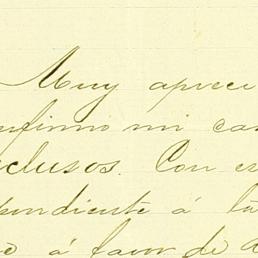 Muy apreci
nfirmo mi ca
clusos. Con es
pondiente á la
á favor de